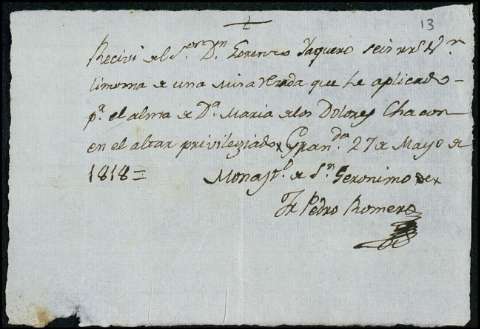 13
Recivi del S.or D.n Lorenzo Vaquero seis rr.s v.n
limosna de una misa rezada que he aplicado
p.r el alma de D.a Maria de los Dolores Chacon
en el altar privilegiado Gran.da 27 de Mayo de
1818 =
Monast.o de S.n Geronimo
Fr Pedro Romero